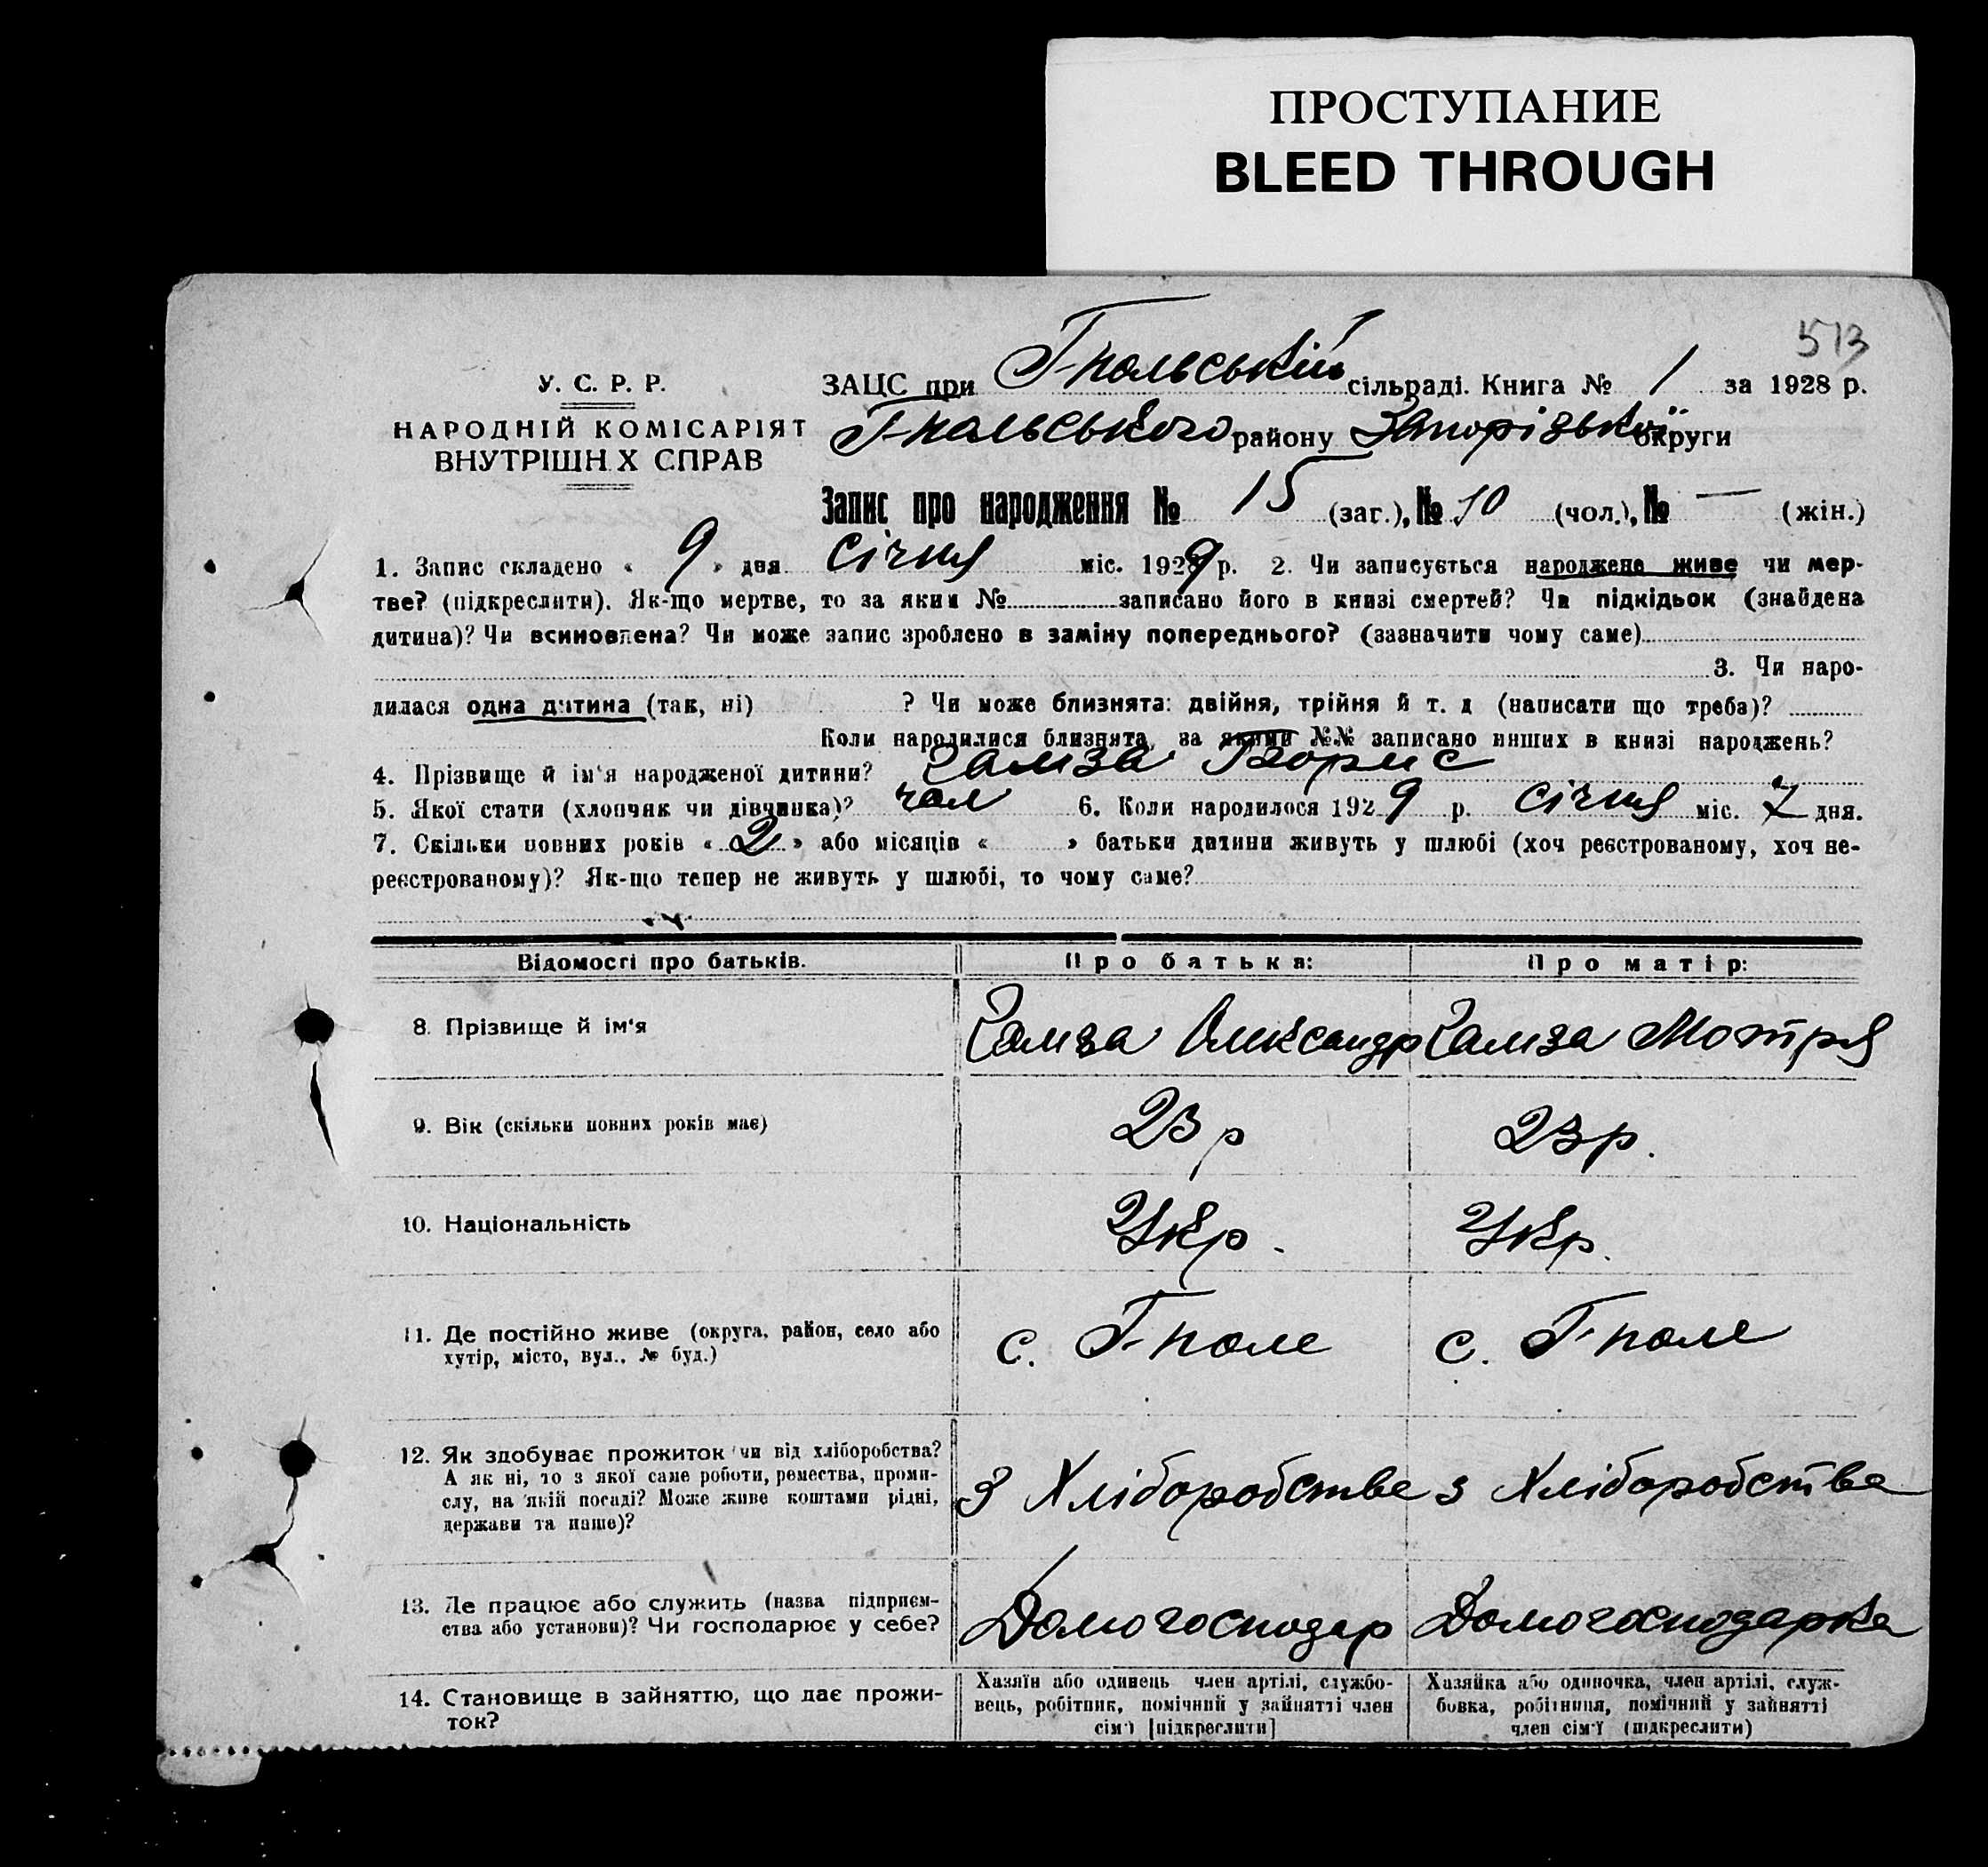 ПРОСТУПАНИЕ
BLEED THROUGH
513
У. С. Р. Р.
НАРОДНІЙ КОМІСАРІЯТ
ВНУТРІШН Х СПРАВ
ЗАЦС при Г-польській сільраді. Книга № 1 за 1928 р.
Г-польського району Запорізької округи
Запис про народження № 15 (заг.), № 10 (чол.), № — (жін.)
1. Запис складено « 9 » дня січня міс. 1929 р. 2. Чи записується народжене живе чи мер-
тве? (підкреслити). Як-що мертве, то за яким № записано його в книзі смертей? Чи підкідьок (знайдена
дитина)? Чи всиновлена? Чи може запис зроблено в заміну попереднього? (зазначити чому саме)
3. Чи наро-
дилася одна дитина (так, ні) ? Чи може близнята: двійня, трійня й т. д (написати що треба)?
Коли народилися близнята, за якими №№ записано инших в книзі народжень?
4. Прізвище й ім'я народженої дитини? Гамза Борис
5. Якої стати (хлопчик чи дівчинка)? чол 6. Коли народилося 1929 р. січня міс. 7 дня.
7. Скільки повних років « 2 » або місяців « » батьки дитини живуть у шлюбі (хоч реєстрованому, хоч не-
реєстрованому)? Як-що тепер не живуть у шлюбі, то чому саме?
Відомості про батьків. Про батька: Про матір:
8. Прізвище й ім'я Гамза Олександр Гамза Мотря
9. Вік (скільки повних років має) 23 р 23 р.
10. Національність Укр. Укр.
11. Де постійно живе (округа, район, село або
хутір, місто, вул., № буд.) с. Г-поле с. Г-поле
12. Як здобуває прожиток чи від хліборобства?
А як ні, то з якої саме роботи, ремества, проми-
слу, на якій посаді? Може живе коштами рідні,
держави та инше)? З Хліборобства з Хліборобства
13. Де працює або служить (назва підприєм-
ства або установи)? Чи господарює у себе? Домогосподар Домогосподарка
14. Становище в зайняттю, що дає прожи-
ток?
Хазяїн або одинець член артілі, службо-
вець, робітник, помічний у зайнятті член
сім'ї [підкреслити]
Хазяйка або одиночка, член артілі, служ-
бовка, робітниця, помічний у зайнятті
член сім'ї (підкреслити)